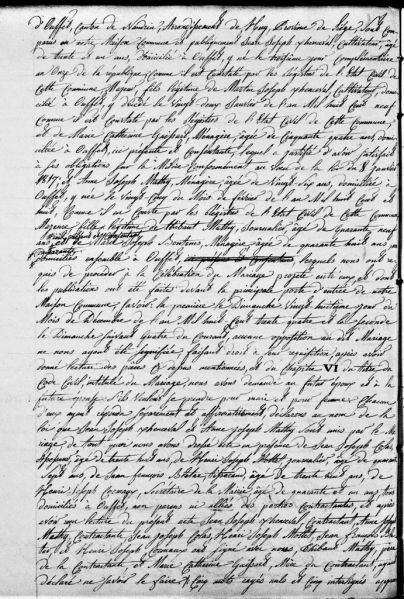 d'Ouffet, Canton de Nandrin, Arrondissement de Huy, Province de Liège, sont Com-
parus en notre Maison Commune et publiquement Jean Joseph Cultivateur, agé
de trente et un ans, domicilié à Ouffet, y né le troisième jour Complémentaire
an Onze de la republique, Comme il est Constaté par les Registres de l'Etat Civil de
Cette Commune, Majeur, fils légitime de Martin Joseph Cultivateur, domi-
cilié à Ouffet, y décédé le Vingt deux Janvier de l'an Mil huit Cent neuf
Comme il est Constaté par les Registres de l'Etat Civil de Cette Commune,
et de Marie Catherine Ménagère, agée de Cinquante quatre ans, domi-
ciliée à Ouffet, ici présente et Consentante, lequel a justifié d'avoir satisfait
à ses obligations sur la Milice Conformément au Vœu de la loi du 8 Janvier
1817, Et Anne Joseph Mathy, Ménagère, agée de Vingt Six ans, domiciliée à
Ouffet, y née le Vingt Cinq du Mois de février de l'an Mil huit Cent
huit, Comme il en Conste par les Registres de l'Etat Civil de Cette Commune
Majeure fille légitime de Thibaut Mathy, Journalier, agé de quarante neuf
ans et de Marie Joseph Ménagère, agée de quarante huit ans
domiciliés ensemble à Ouffet, lesquels nous ont re-
quis de procéder à la Célébration du Mariage projeté entre eux, et dont
les publications ont été faites devant la principale porte d'entrée de notre
Maison Commune, Savoir: la première le Dimanche Vingt huitième jour du
Mois de Décembre de l'an Mil huit Cent trente quatre et la Seconde
le Dimanche suivant quatre du Courant, aucune opposition au dit Mariage
ne nous ayant été signifiée, faisant droit à leur requisition, après avoir
donné lecture des pièces Ci dessus mentionnées, et du Chapitre VI du titre du
Code Civil intitulé du Mariage, nous avons demandé au futur époux et à la
future épouse s'ils Veulent se prendre pour mari et pour femme, Chacun
d'eux ayant répondu séparément et affirmativement, déclarons au nom de la
loi que Jean Joseph et Anne Joseph Mathy Sont unis par le Ma-
riage, de tout quoi nous avons dressé acte en présence de Jean Joseph Colas,
agé de trente huit ans, de Henri Joseph Mottet Journalier, agé de quarante
Sept ans, de Jean François agé de trente huit ans, de
Henri Joseph Secrétaire de la Mairie agé de quarante et un ans, tous
domiciliés à Ouffet, non parens ni alliés des parties Contractantes, et après
avoir fait lecture du présent acte Jean Joseph Contractant, Anne Joseph
Mathy, Contractante, Jean Joseph Colas, Henri Joseph Mottet, Jean François
et Henri Joseph ont signé avec nous, Thibaut Mathy, père
de la Contractante, et Marie Catherine Mère du Contractant, ayant
déclaré ne savoir le faire,